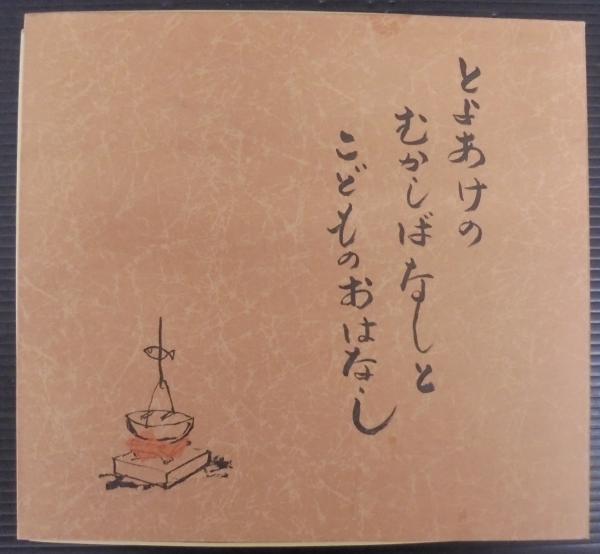 とよあけの
むかしばなしと
こどものおはなし